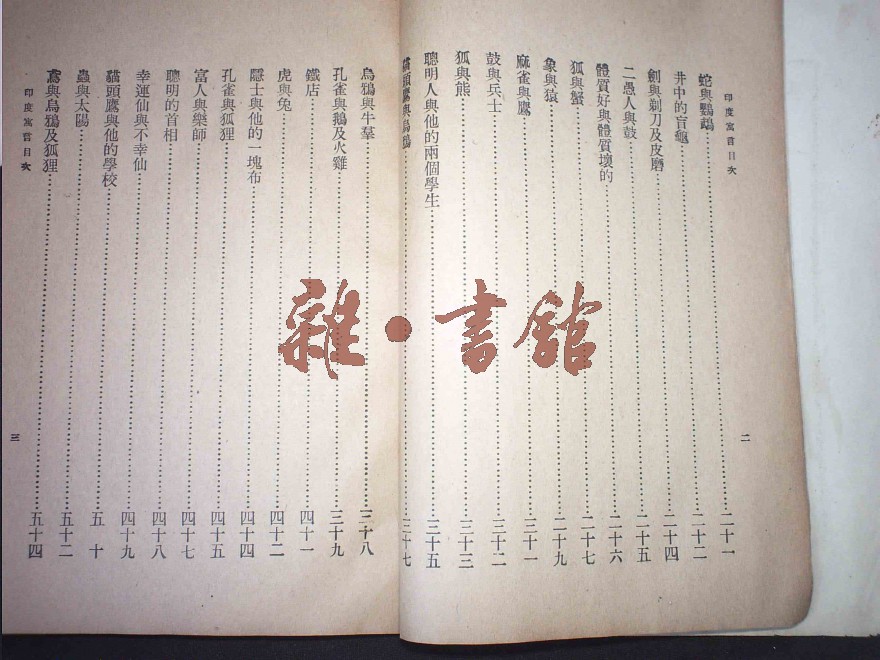 印度寓言目次
蛇與鸚鵡……二十一
井中的盲龜……二十二
劍與剃刀及皮磨……二十四
二愚人與鼓……二十五
體質好與體質壞的……二十六
狐與蟹……二十七
象與猿……二十九
麻雀與鷹……三十一
鼓與兵士……三十二
狐與熊……三十三
聰明人與他的兩個學生……三十五
貓頭鷹與烏鴉……三十七
二
烏鴉與牛羣……三十八
孔雀與鵝及火雞……三十九
鐵店……四十一
虎與兔……四十二
隱士與他的一塊布……四十四
孔雀與狐狸……四十五
富人與樂師……四十七
聰明的首相……四十八
幸運仙與不幸仙……四十九
貓頭鷹與他的學校……五十
蟲與太陽……五十二
鳶與烏鴉及狐狸……五十四
印度寓言目次
三
雜·書館